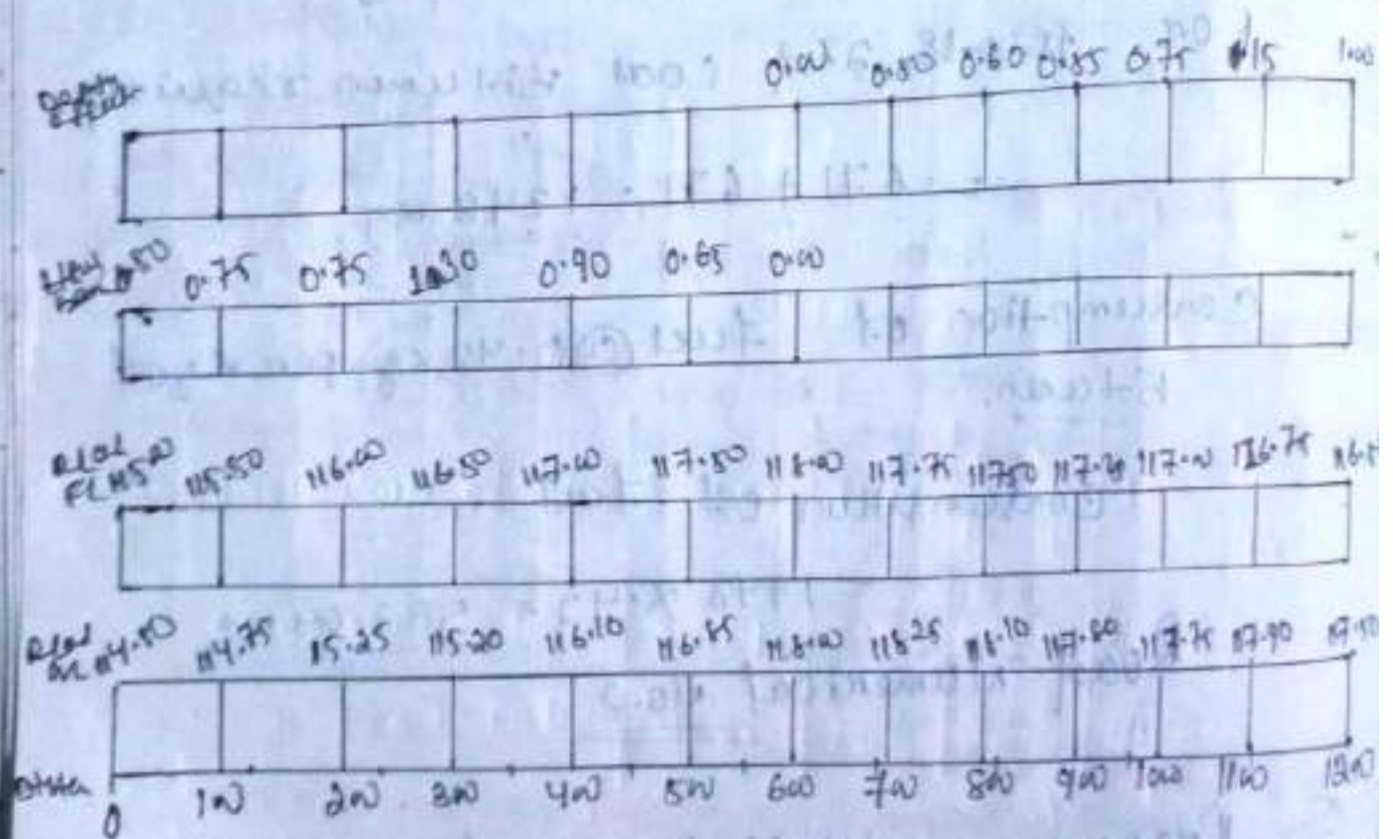 Depth
0.00 0.50 0.60 0.55 0.75 1.15 1.00
0.50 0.75 0.75 1.30 0.90 0.65 0.00
R.L of
FL 115.00 115.50 116.00 116.50 117.00 117.50 118.00 117.75 117.50 117.25 117.00 116.75 116.5
R.L of
GL 114.50 114.75 115.25 115.20 116.10 116.85 118.00 118.25 118.10 117.80 117.75 117.90 117.50
0 100 200 300 400 500 600 700 800 900 1000 1100 1200